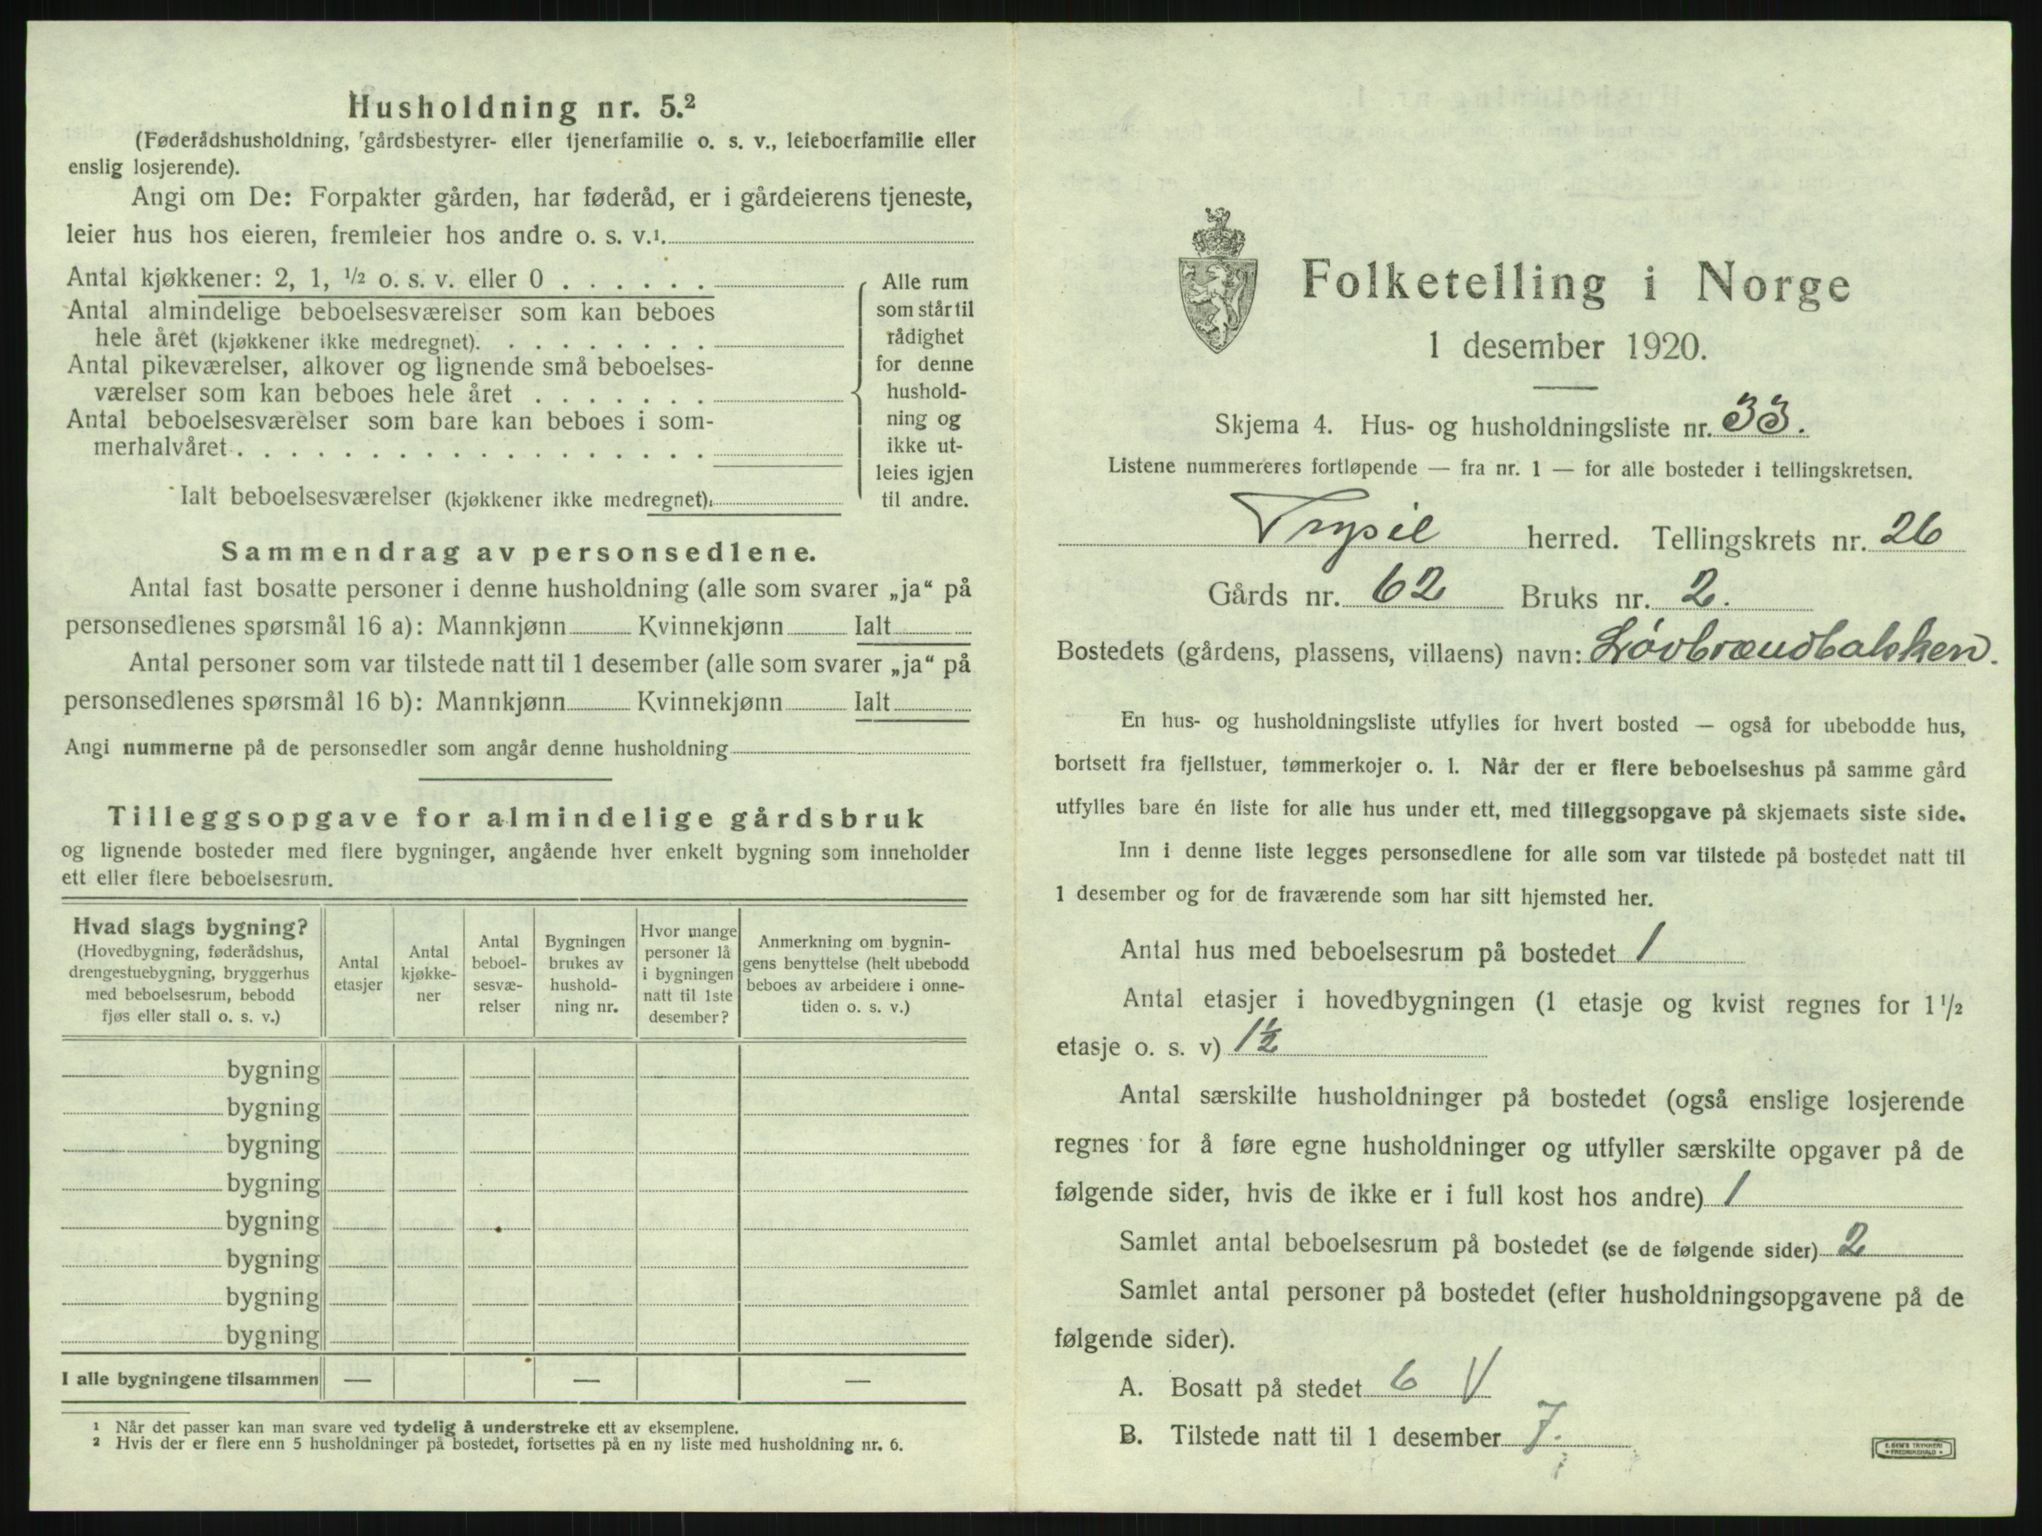 Husholdning nr. 5.²
(Føderådshusholdning, gårdsbestyrer- eller tjenerfamilie o. s. v., leieboerfamilie eller
enslig losjerende).
Angi om De: Forpakter gården, har føderåd, er i gårdeierens tjeneste,
leier hus hos eieren, fremleier hos andre o. s. v.¹
Antal kjøkkener: 2, 1, ½ o. s. v. eller 0 . . . . . .
Antal almindelige beboelsesværelser som kan beboes
hele året (kjøkkener ikke medregnet). . . . . . . . .
Antal pikeværelser, alkover og lignende små beboelses-
værelser som kan beboes hele året . . . . . . .
Antal beboelsesværelser som bare kan beboes i som-
merhalvåret . . . . . . . . . . . . . . . . . .
Ialt beboelsesværelser (kjøkkener ikke medregnet)
Alle rum
som står til
rådighet
for denne
hushold-
ning og
ikke ut-
leies igjen
til andre.
Sammendrag av personsedlene.
Antal fast bosatte personer i denne husholdning (alle som svarer „ja“ på
personsedlenes spørsmål 16 a): Mannkjønn Kvinnekjønn Ialt
Antal personer som var tilstede natt til 1 desember (alle som svarer „ja“ på
personsedlenes spørsmål 16 b): Mannkjønn Kvinnekjønn Ialt
Angi nummerne på de personsedler som angår denne husholdning
Tilleggsopgave for almindelige gårdsbruk
og lignende bosteder med flere bygninger, angående hver enkelt bygning som inneholder
ett eller flere beboelsesrum.
Hvad slags bygning?
(Hovedbygning, føderådshus,
drengestuebygning, bryggerhus
med beboelsesrum, bebodd
fjøs eller stall o. s. v.)
Antal
etasjer
Antal
kjøkke-
ner
Antal
beboel-
sesvæ-
relser
Bygningen
brukes av
hushold-
ning nr.
Hvor mange
personer lå
i bygningen
natt til 1ste
desember?
Anmerkning om bygnin-
gens benyttelse (helt ubebodd
beboes av arbeidere i onne-
tiden o. s. v.)
bygning
bygning
bygning
bygning
bygning
bygning
bygning
bygning
I alle bygningene tilsammen — — —
¹ Når det passer kan man svare ved tydelig å understreke ett av eksemplene.
² Hvis der er flere enn 5 husholdninger på bostedet, fortsettes på en ny liste med husholdning nr. 6.
Folketelling i Norge
1 desember 1920.
Skjema 4. Hus- og husholdningsliste nr. 33.
Listene nummereres fortløpende — fra nr. 1 — for alle bosteder i tellingskretsen.
Trysil herred. Tellingskrets nr. 26
Gårds nr. 62 Bruks nr. 2.
Bostedets (gårdens, plassens, villaens) navn: Løvbrændbakken.
En hus- og husholdningsliste utfylles for hvert bosted — også for ubebodde hus,
bortsett fra fjellstuer, tømmerkojer o. l. Når der er flere beboelseshus på samme gård
utfylles bare én liste for alle hus under ett, med tilleggsopgave på skjemaets siste side.
Inn i denne liste legges personsedlene for alle som var tilstede på bostedet natt til
1 desember og for de fraværende som har sitt hjemsted her.
Antal hus med beboelsesrum på bostedet 1
Antal etasjer i hovedbygningen (1 etasje og kvist regnes for 1 ½
etasje o. s. v) 1½
Antal særskilte husholdninger på bostedet (også enslige losjerende
regnes for å føre egne husholdninger og utfyller særskilte opgaver på de
følgende sider, hvis de ikke er i full kost hos andre) 1
Samlet antal beboelsesrum på bostedet (se de følgende sider) 2
Samlet antal personer på bostedet (efter husholdningsopgavene på de
følgende sider).
A. Bosatt på stedet 6 V
B. Tilstede natt til 1 desember 7.
E. SEM'S TRYKKERI
FREDRIKSHALD